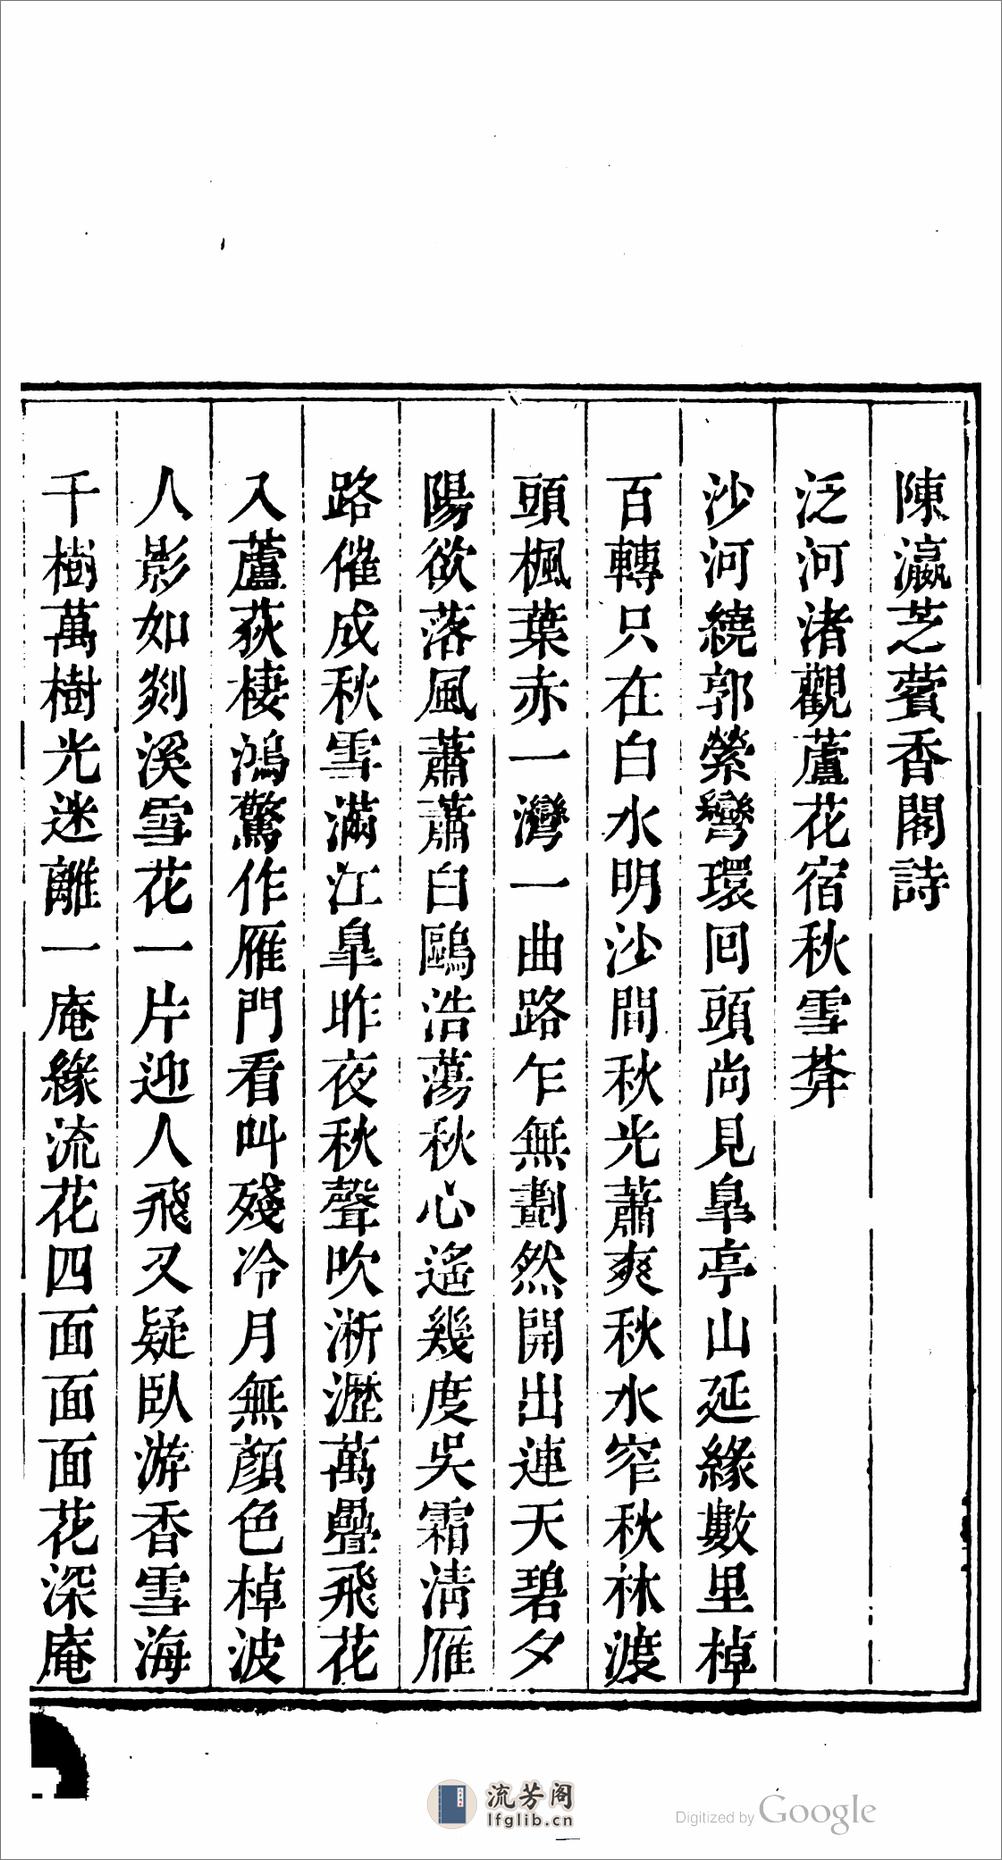 陳瀛芝薲香閣詩
泛河渚觀蘆花宿秋雪葊
沙河繞郭縈彎環回頭尚見臯亭山延緣數里棹
百轉只在白水明沙間秋光蕭爽秋水窄秋林渡
頭楓葉赤一灣一曲路乍無劃然開出連天碧夕
陽欲落風蕭蕭白鷗浩蕩秋心遙幾度吳霜淸雁
路催成秋雪滿江臯昨夜秋聲吹淅瀝萬疊飛花
入蘆荻棲鴻驚作雁門看叫殘冷月無顏色棹波
人影如剡溪雪花一片迎人飛又疑臥游香雪海
千樹萬樹光迷離一庵緣流花四面面面花深庵
流芳阁
lfglib.cn
Digitized by Google